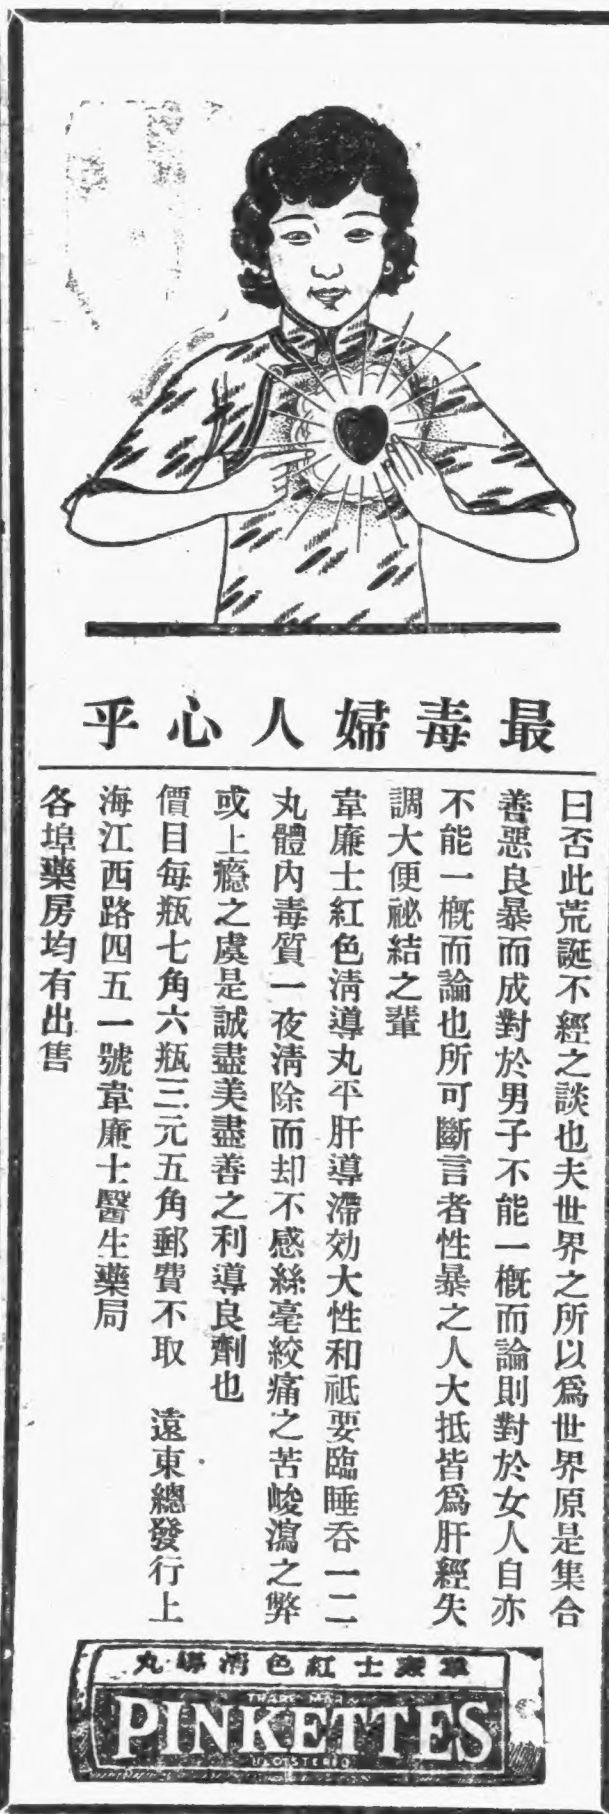 最毒婦人心乎
曰否此荒誕不經之談也夫世界之所以爲世界原是集合
善惡良暴而成對於男子不能一概而論則對於女人自亦
不能一概而論也所可斷言者性暴之人大抵皆爲肝經失
調大便祕結之輩
韋廉士紅色淸導丸平肝導滯効大性和祗要臨睡吞一二
丸體內毒質一夜淸除而却不感絲毫絞痛之苦峻瀉之弊
或上癮之虞是誠盡美盡善之利導良劑也
價目每瓶七角六瓶三元五角郵費不取　遠東總發行上
海江西路四五一號韋廉士醫生藥局
各埠藥房均有出售
韋廉士紅色淸導丸
TRADE MARK
PINKETTES